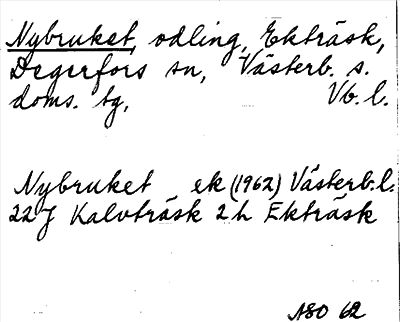 Nybruket, odling, Ekträsk,
Degerfors sn, Västerb. s.
doms. tg, Vb. l.
Nybruket ek (1962) Västerb. l.
22J Kalvträsk 2h Ekträsk
ASO 62